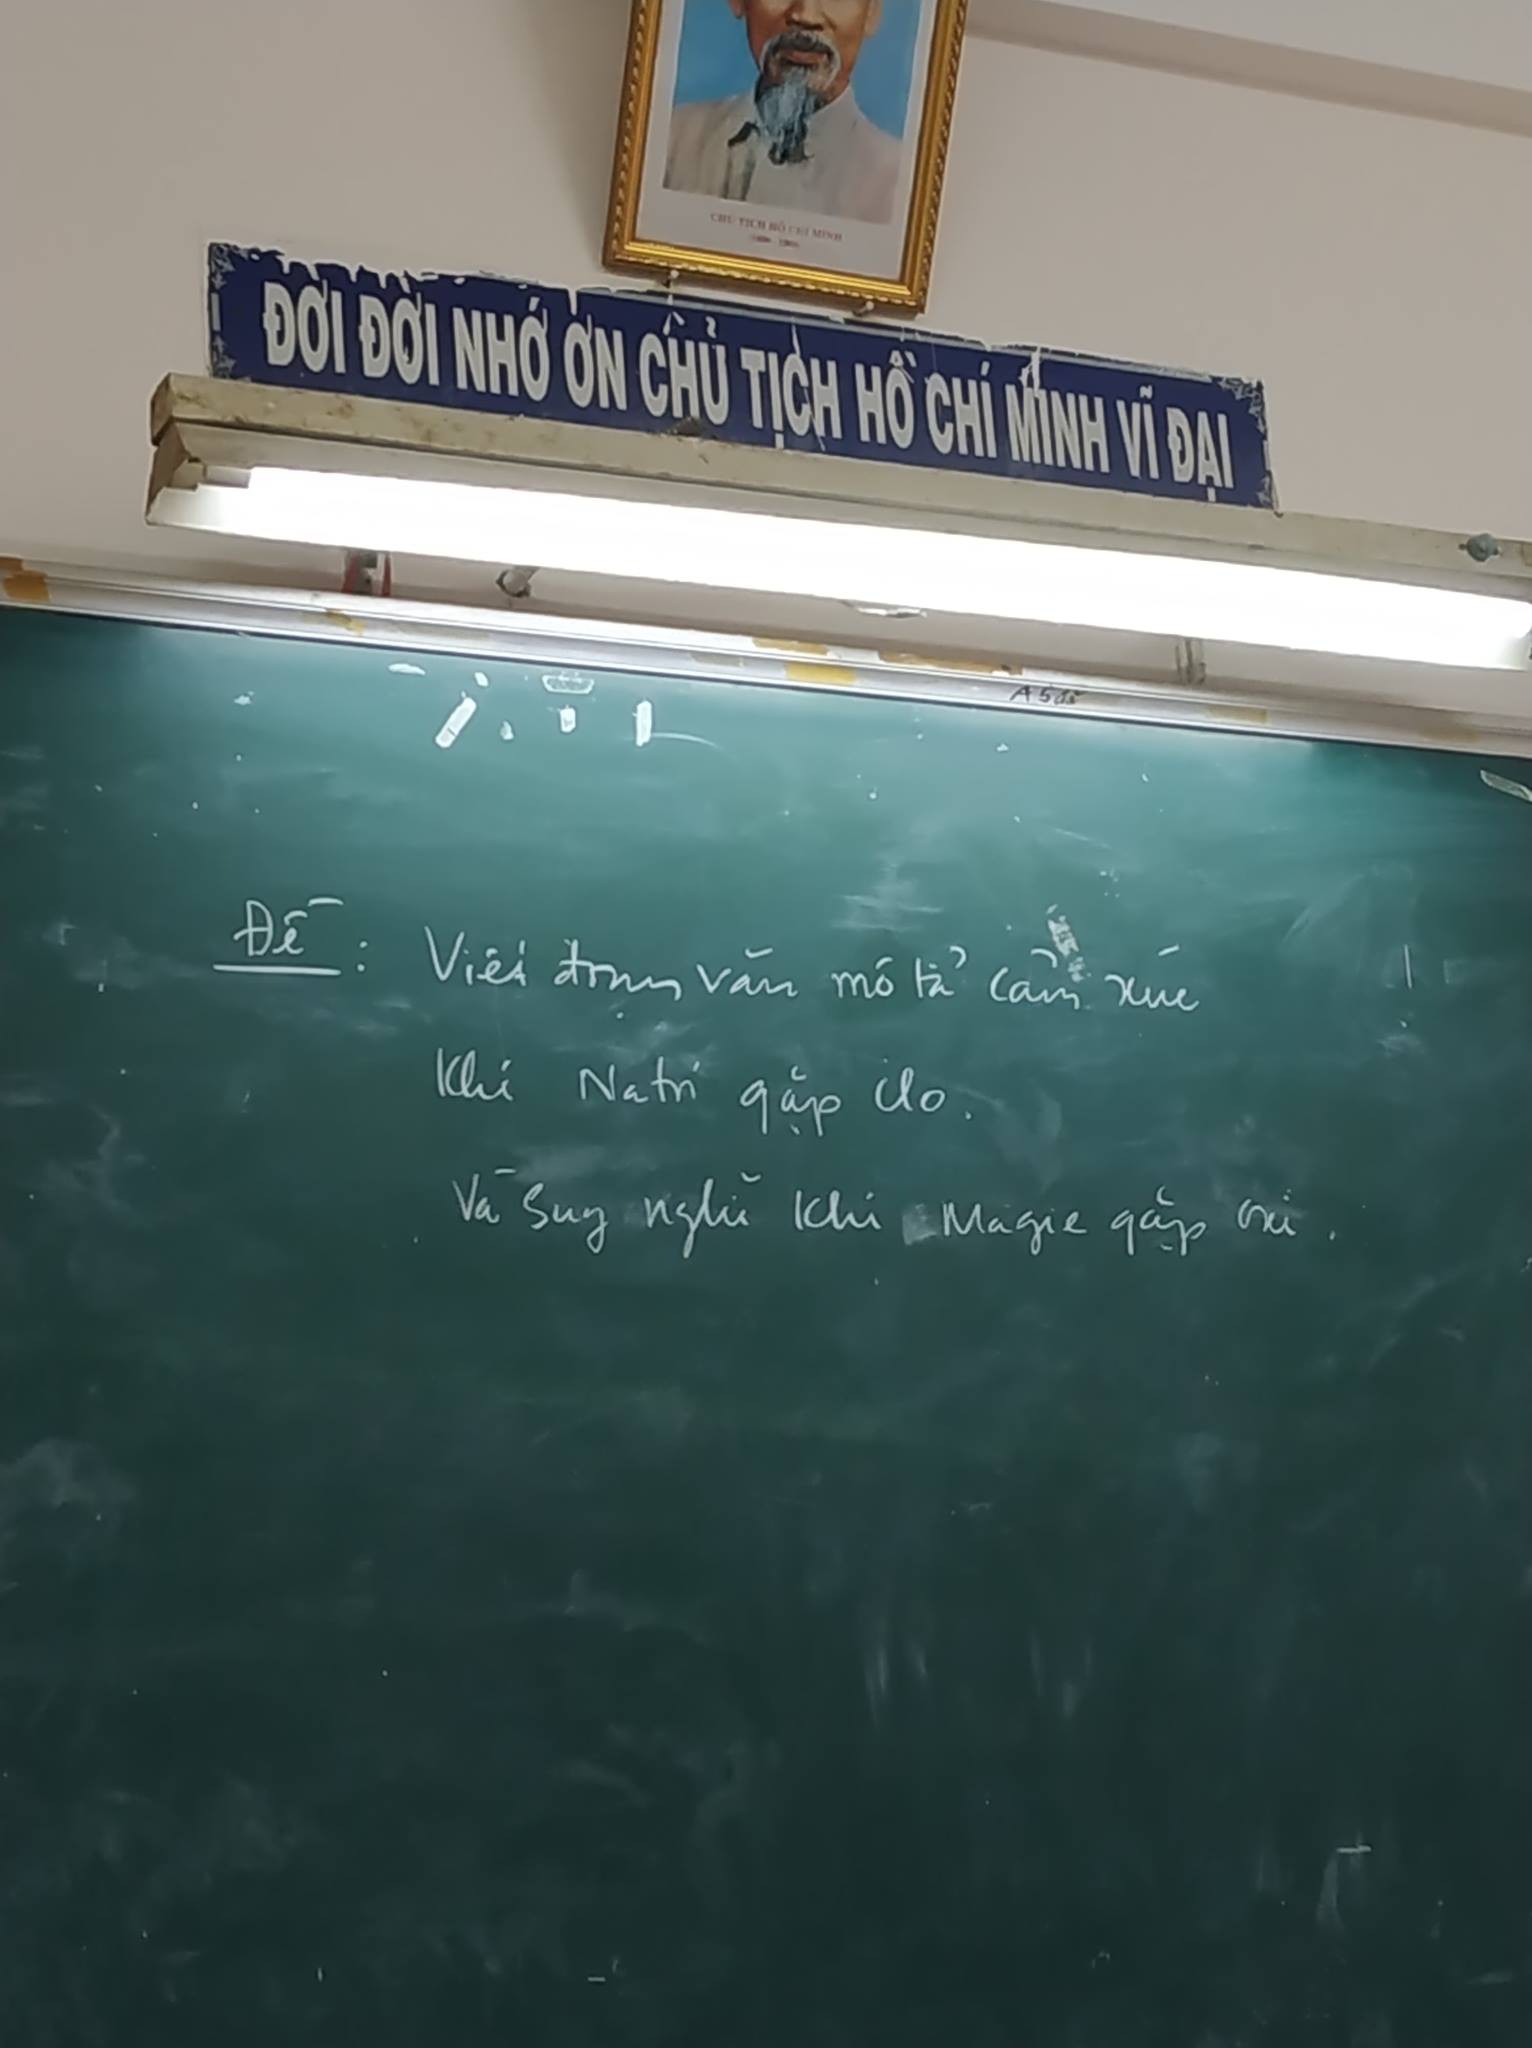 CHỦ TỊCH HỒ CHÍ MINH
ĐỜI ĐỜI NHỚ ƠN CHỦ TỊCH HỒ CHÍ MINH VĨ ĐẠI
Đề : Viết đoạn văn mô tả cảm xúc
khi Natri gặp clo.
Và Suy nghĩ khi Magie gặp oxi.